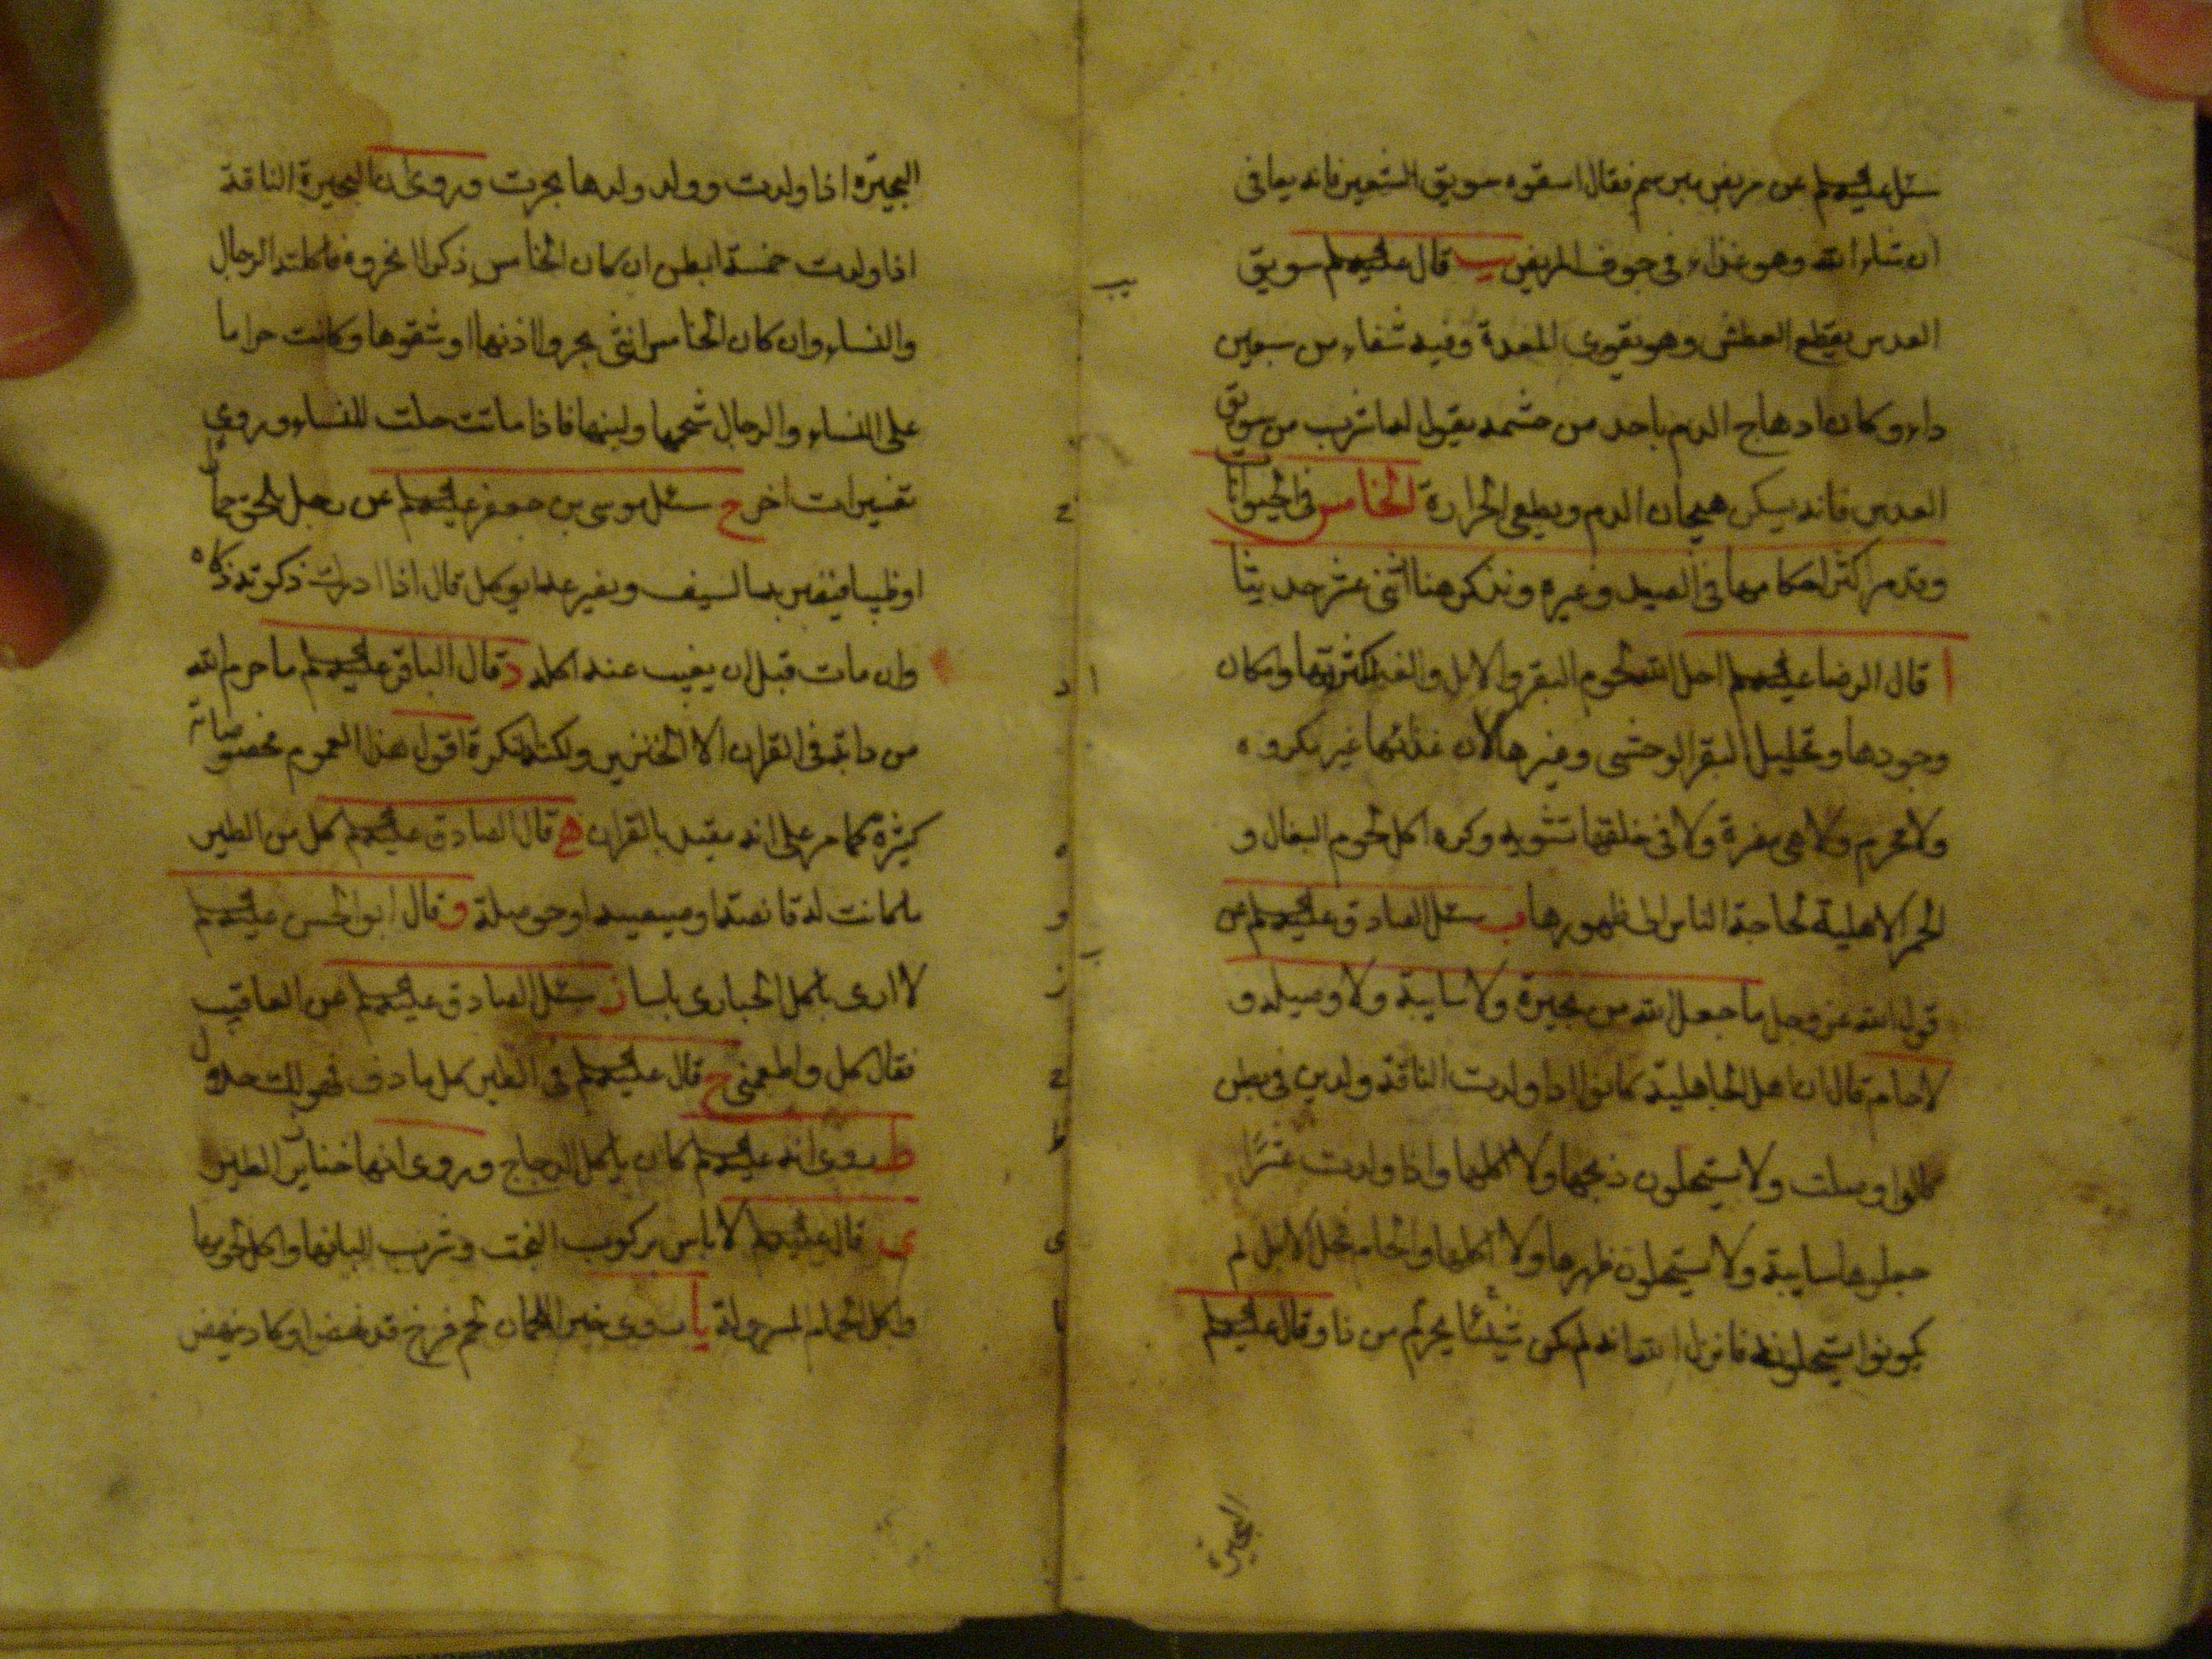 سئل عليه السلم عن مريض مبرسم فقال اسقوه سويق الشعير فانه يعافى
ان شاء الله وهو غذاء في جوف المريض يب قال عليه السلم سويق
يب
العدس يقطع العطش وهو يقوى المعدة وفيه شفاء من سبعين
داء وكان اذا هاج الدم باحد من حشمه يقول له اشرب من سويق
العدس فانه يسكن هيجان الدم ويطفى الحرارة الخامس في الحيوانات
وقد مر اكثر احكامها في الصيد وغيره ونذكر هنا اثنى عشر حديثا
ا قال الرضا عليه السلم احل الله لحوم البقر والابل والغنم لكثرتها وامكان
ا
وجودها وتحليل البقر الوحشى وغيرها لان غذائها غير مكروه
ولا محرم ولا هى مضرة ولا في خلقتها تشويه وكره اكل لحوم البغال و
الحمر الاهلية لحاجة الناس الى ظهورها ب سئل الصادق عليه السلم عن
ب
قول الله عز وجل ما جعل الله من بحيرة ولا سايبة ولا وصيلة و
لا حام قال ان اهل الجاهلية كانوا اذا ولدت الناقة ولدين في بطن
قالوا وصلت ولا يستحلون ذبحها ولا اكلها واذا ولدت عشرا
جعلوها سايبة ولا يستحلون ظهرها ولا اكلها والحام فحل الابل لم
يكونوا يستحلونه فانزل الله انه لم يكن شيئا يحرم من ذا وقال عليه السلم
البحيرة
البحيرة اذا ولدت وولد ولدها بحرت وروى ان البحيرة الناقة
اذا ولدت خمسة ابطن ان كان الخامس ذكرا نحروه فاكلته الرجال
والنساء وان كان الخامس انثى بحروا اذنها او شقوها وكانت حراما
على النساء والرجال شحمها ولبنها فاذا ماتت حلت للنساء وروى
تفسيرات اخر ج سئل موسى بن جعفر عليه السلم عن رجل يلحق حمارا
ج
او ظبيا فيضربه بالسيف ويصرعه ايوكل قال اذا ادركت ذكوته ذكاه
وان مات قبل ان يغيب عنه اكله د قال الباقر عليه السلم ما حرم الله
د
من دابة في القران الا الخنزير ولكنه النكرة اقول هذا العموم مخصوصاته
كثيرة كما مر على انه مقيد بالقران ه قال الصادق عليه السلم كل من الطير
ه
ما كانت له قانصة او صيصية او حوصلة و قال ابو الحسن عليه السلم
و
لا ارى باكل الحبارى باسا ز سئل الصادق عليه السلم عن
ز
فقال كل واطعمنى ح قال عليه السلم في الطير كل ما دف فهو لك حلال
ح
ط روى انه عليه السلم كان ياكل الدجاج وروى انها خنازير الطير
ط
ى قال عليه السلم لا باس بركوب البخت وشرب البانها واكل لحومها
ى
واكل الحمام المسرولة يا روى خير اللحمان لحم فرخ قد نهض او كاد ينهض
يا